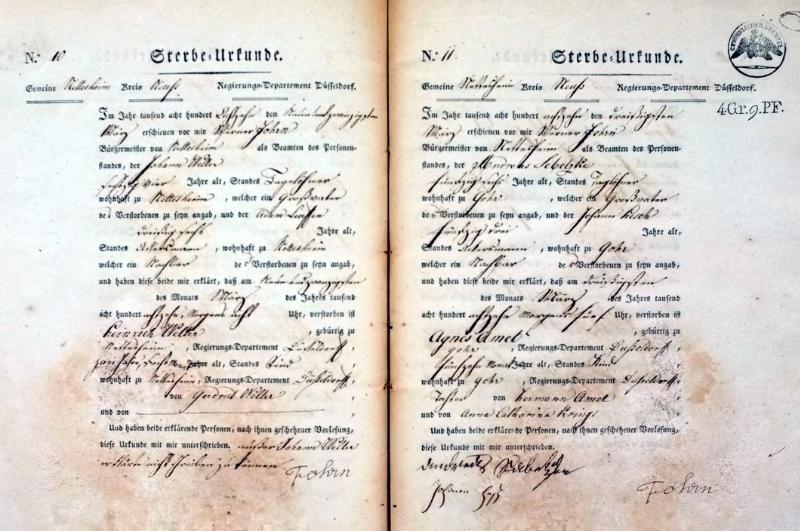 N.º 10 Sterbe-Urkunde.
Gemeine Nettesheim Kreis Neuß Regierungs-Departement Düsseldorf.
Im Jahr tausend acht hundert achtzehn den
März erschienen vor mir Werner Fohrn
Bürgermeister von Nettesheim als Beamten des Personen-
standes, der Johann Willer
sechszig vier Jahre alt, Standes Tagelöhner
wohnhaft zu Nettesheim, welcher ein Großvater
de Verstorbenen zu seyn angab, und der
dreißig Jahre alt,
Standes Ackersmann, wohnhaft zu Nettesheim
welcher ein Nachbar de Verstorbenen zu seyn angab,
und haben diese beide mir erklärt, daß am
des Monats März des Jahres tausend
acht hundert achtzehn, Morgens acht Uhr, verstorben ist
Heinrich Willer gebürtig zu
Nettesheim, Regierungs-Departement Düsseldorf,
Jahre alt, Standes Kind
wohnhaft zu Nettesheim, Regierungs-Departement Düsseldorff,
von Willer
und von
Und haben beide erklärende Personen, nach ihnen geschehener Vorlesung,
diese Urkunde mit mir unterschrieben. Johann Willer
erklärte nicht schreiben zu können
Fohrn
N.º 11. Sterbe-Urkunde.
Gemeine Nettesheim Kreis Neuß Regierungs-Departement Düsseldorf.
4.Gr.9.PF.
Im Jahr tausend acht hundert achtzehn den dreißigsten
März erschienen vor mir Werner Fohrn
Bürgermeister von Nettesheim als Beamten des Personen-
standes, der Andreas
fünfzig sechs Jahre alt, Standes Taglöhner
wohnhaft zu Gohr, welcher ein Großvater
de Verstorbenen zu seyn angab, und der Johann
fünfzig drei Jahre alt,
Standes Ackersmann, wohnhaft zu Gohr
welcher ein Nachbar de Verstorbenen zu seyn angab,
und haben diese beide mir erklärt, daß am dreißigsten
des Monats März des Jahres tausend
acht hundert achtzehn Morgends fünf Uhr, verstorben ist
Agnes Amel gebürtig zu
Gohr, Regierungs-Departement Düsseldorff,
fünfzehn Jahre alt, Standes Kind
wohnhaft zu Gohr, Regierungs-Departement Düsseldorff,
Tochter von Hermann Amel
und von Anna Catharina Königs
Und haben beide erklärende Personen, nach ihnen geschehener Vorlesung,
diese Urkunde mit mir unterschrieben.
Andreas
Johann
Fohrn